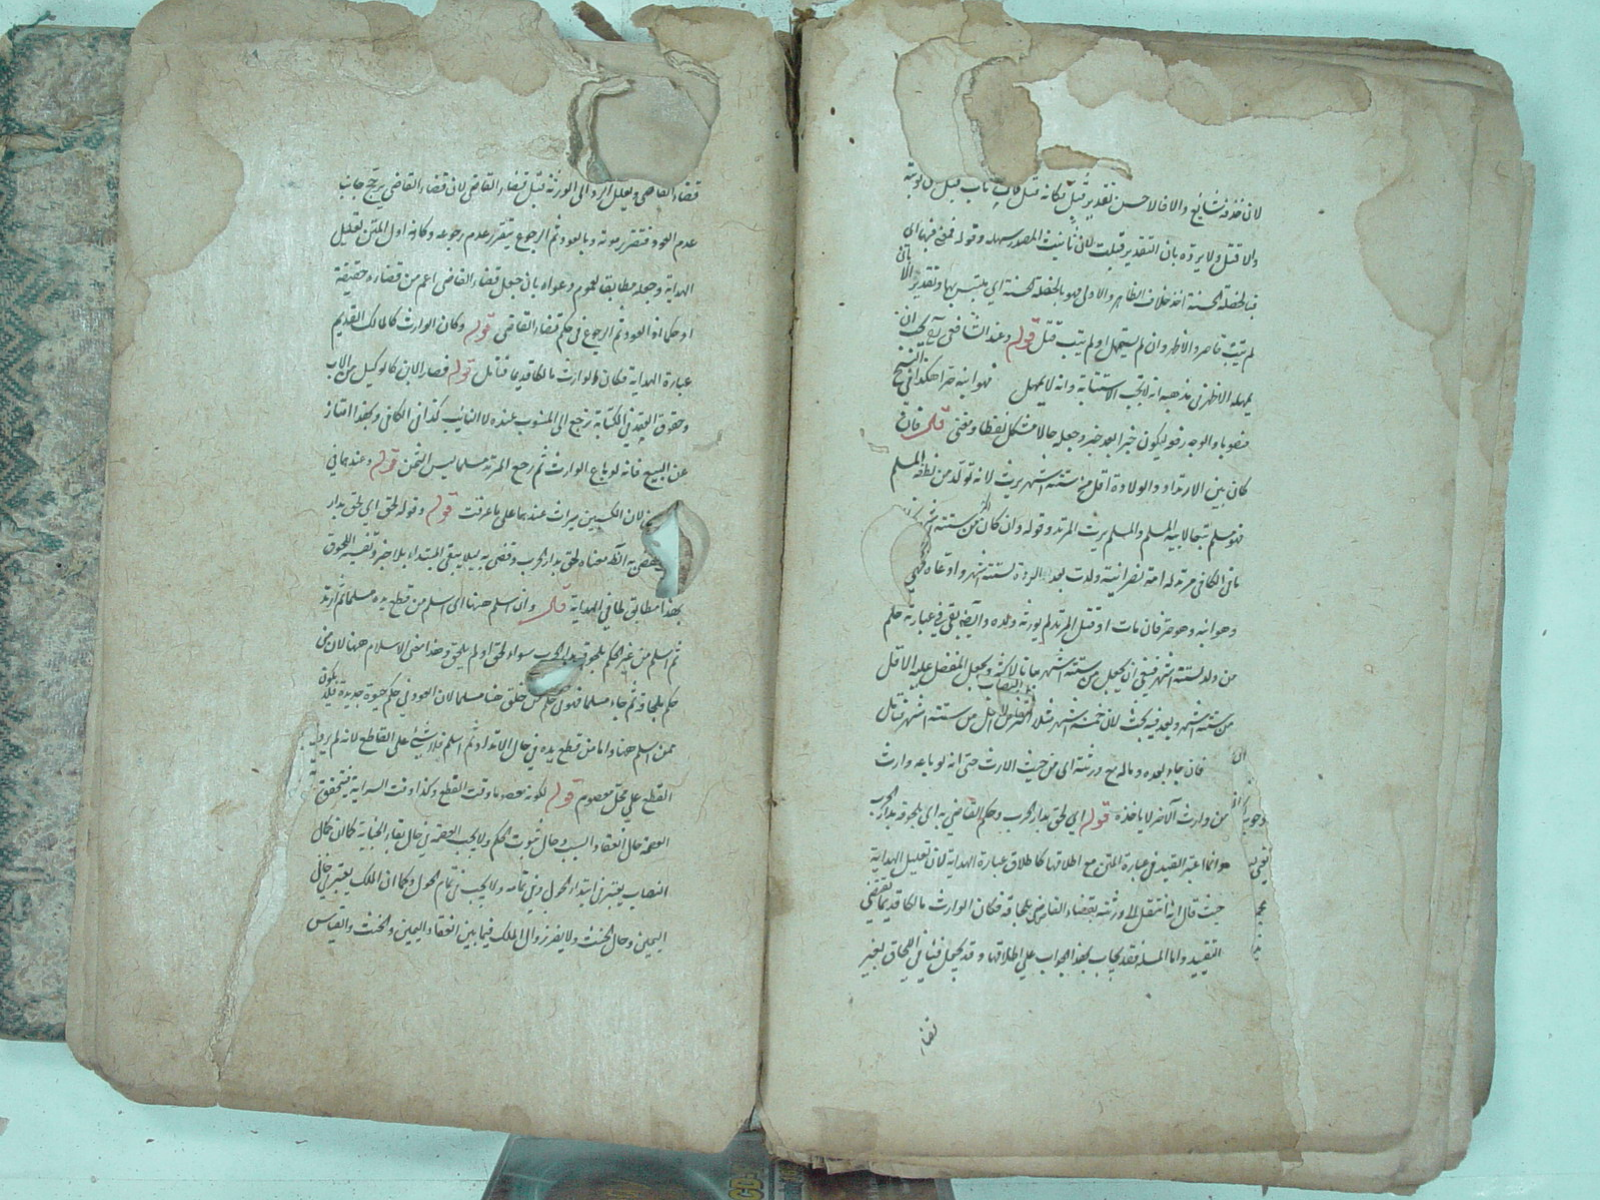 لان حذفه شائع والا فالاحسن تقدير قبل فكانه قيل فان تاب قبل توبته
والا قتل ولا يرد بان التقدير قبلت لان تانيث المصدر سهل وقوله فنعم فيها اى
فبالخصلة الحسنة اخذ خلاف الظاهر والاولى فهو بالخصلة الحسنة اي ملتبس بها وتقدير الا
لم يتب قاصر والاظهر وان لم يستمهل او لم يتب قتل قوله وعند الشافعي يجب ان
يمهله الاظهر في مذهبه انه لا تجب الاستتابة وانه لا يمهل فهو ابنه حرا هكذا في النسخ
منصوبا والوجه رفعه ليكون خبرا بعد خبر وجعله حالا مشكل لفظا ومعنى قوله فان
كان بين الارتداد والولادة اقل من ستة اشهر يرث لانه تولد من نطفة المسلم
فهو مسلم تبعا لابيه المسلم والمسلم يرث المرتد وقوله وان كان اكثر من ستة
مافى الكافى مرتد له امة نصرانية ولدت بعد الردة لستة اشهر وادعاه فهي
وهو ابنه وهو حر فان مات او قتل المرتد لم يورثه ولده وايضا بقى في عبارته حكم
من ولد لستة اشهر فينبغي ان يجعل من ستة اشهر حالا لاكثر ويجعل المفضل عليه الاقل
من ستة اشهر وبعد فيه بحث لان خمسة اشهر مثلا اقل من ستة اشهر فتأمل
فان جاء بعده وماله مع ورثته اى من حيث الارث حتى انه لو باعه وارث
من وارث الاخر لا ياخذه قوله اي لحق بدار الحرب وحكم القاضي به اى بلحوقه بدار الحرب
وانما اعتبر القيد في عبارة المتن مع اطلاقها كاطلاق عبارة الهداية لان تعليل الهداية
حيث قال انه انتقل الى ورثته بقضاء القاضي بلحاقه فكان الوارث مالكا قديما يقتضي
التقييد واما المسئلة فقد يجاب بهذا الجواب على اطلاقها وقد يحمل فيما في اللحاق بغير
قضاء
قضاء القاضي ويعلل الرد الى الورثة قبل قضاء القاضي لان قضاء القاضي يرجح جانب
عدم العود فتقرر موته وبالعود ثم الرجوع يتقرر عدم رجوعه وكانه اول المتن تعليل
الهداية وجعله مطابقا لعموم دعواه بان جعل قضاء القاضى اعم من قضائه حقيقة
او حكما اذ العود ثم الرجوع في حكم قضاء القاضى قوله وكان الوارث كالمالك القديم
عبارة الهداية فكان الوارث مالكا قديما فتأمل قوله فصار الابن كالوكيل من الاب
وحقوق العقد في الكتابة ترجع الى المنسوب عنه لا النايب كذا فى الكافى وبهذا امتاز
عن البيع فانه لو باع الوارث ثم رجع المرتد مسلما ليس الثمن قوله وعندهما في
لان الكسبين ميراث عندهما على ما عرفت قوله وقوله لحق اي لحق بدار
وقضى به الظ معناه لحق بدار الحرب وقضى به لئلا يبقى المبتداء بلا خبر وتفسيره اللحوق
بهذا مطابق لما في الهداية قوله وان اسلم ههنا اى اسلم من قطع يده مسلما ثم ارتد
ثم اسلم من غير الحكم بلحوقه بدار الحرب سواء لحق او لم يلحق وهذا معنى الاسلام ههنا لان من
حكم بلحاقه ثم جاء مسلما فهو في حكم من خلق هنا مسلما لان العود في حكم حيوة جديدة فلا يكون
ممن اسلم ههنا واما من قطع يده في حال الارتداد ثم اسلم فلا شيئ على القاطع لانه لم يرد
القطع على محل معصوم قوله لكونه معصوما وقت القطع وكذا وقت السراية فيتحقق
العصمة حال انعقاد السبب وحال ثبوت الحكم ولا يجب العصمة في حال بقاء الجناية كما ان كمال
النصاب يعتبر في ابتداء الحول وفي تمامه ولا يجب في تمام الحول وكما ان الملك يعتبر في حال
اليمين وحال الحنث ولا يضر زوال الملك فيما بين انعقاد اليمين والحنث والقياس